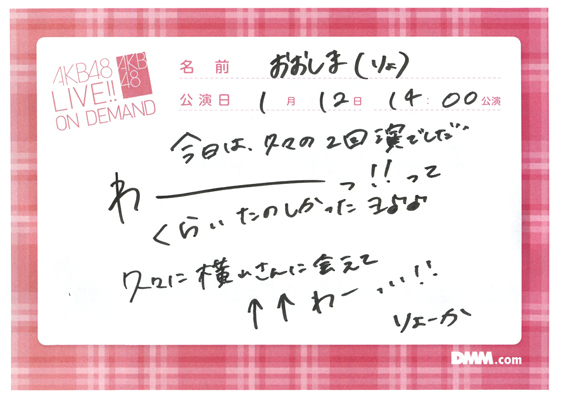 AKB48
LIVE!!
ON DEMAND
AKB
48
名前 おおしま(りょ)
公演日 1月12日 14:00公演
今日は、久々の2回演でした〜
わーーーっ!!って
くらいたのしかったヨ♪♪
久々に横山さんに会えて
↑↑わーっい!!
りょーか
DMM.com